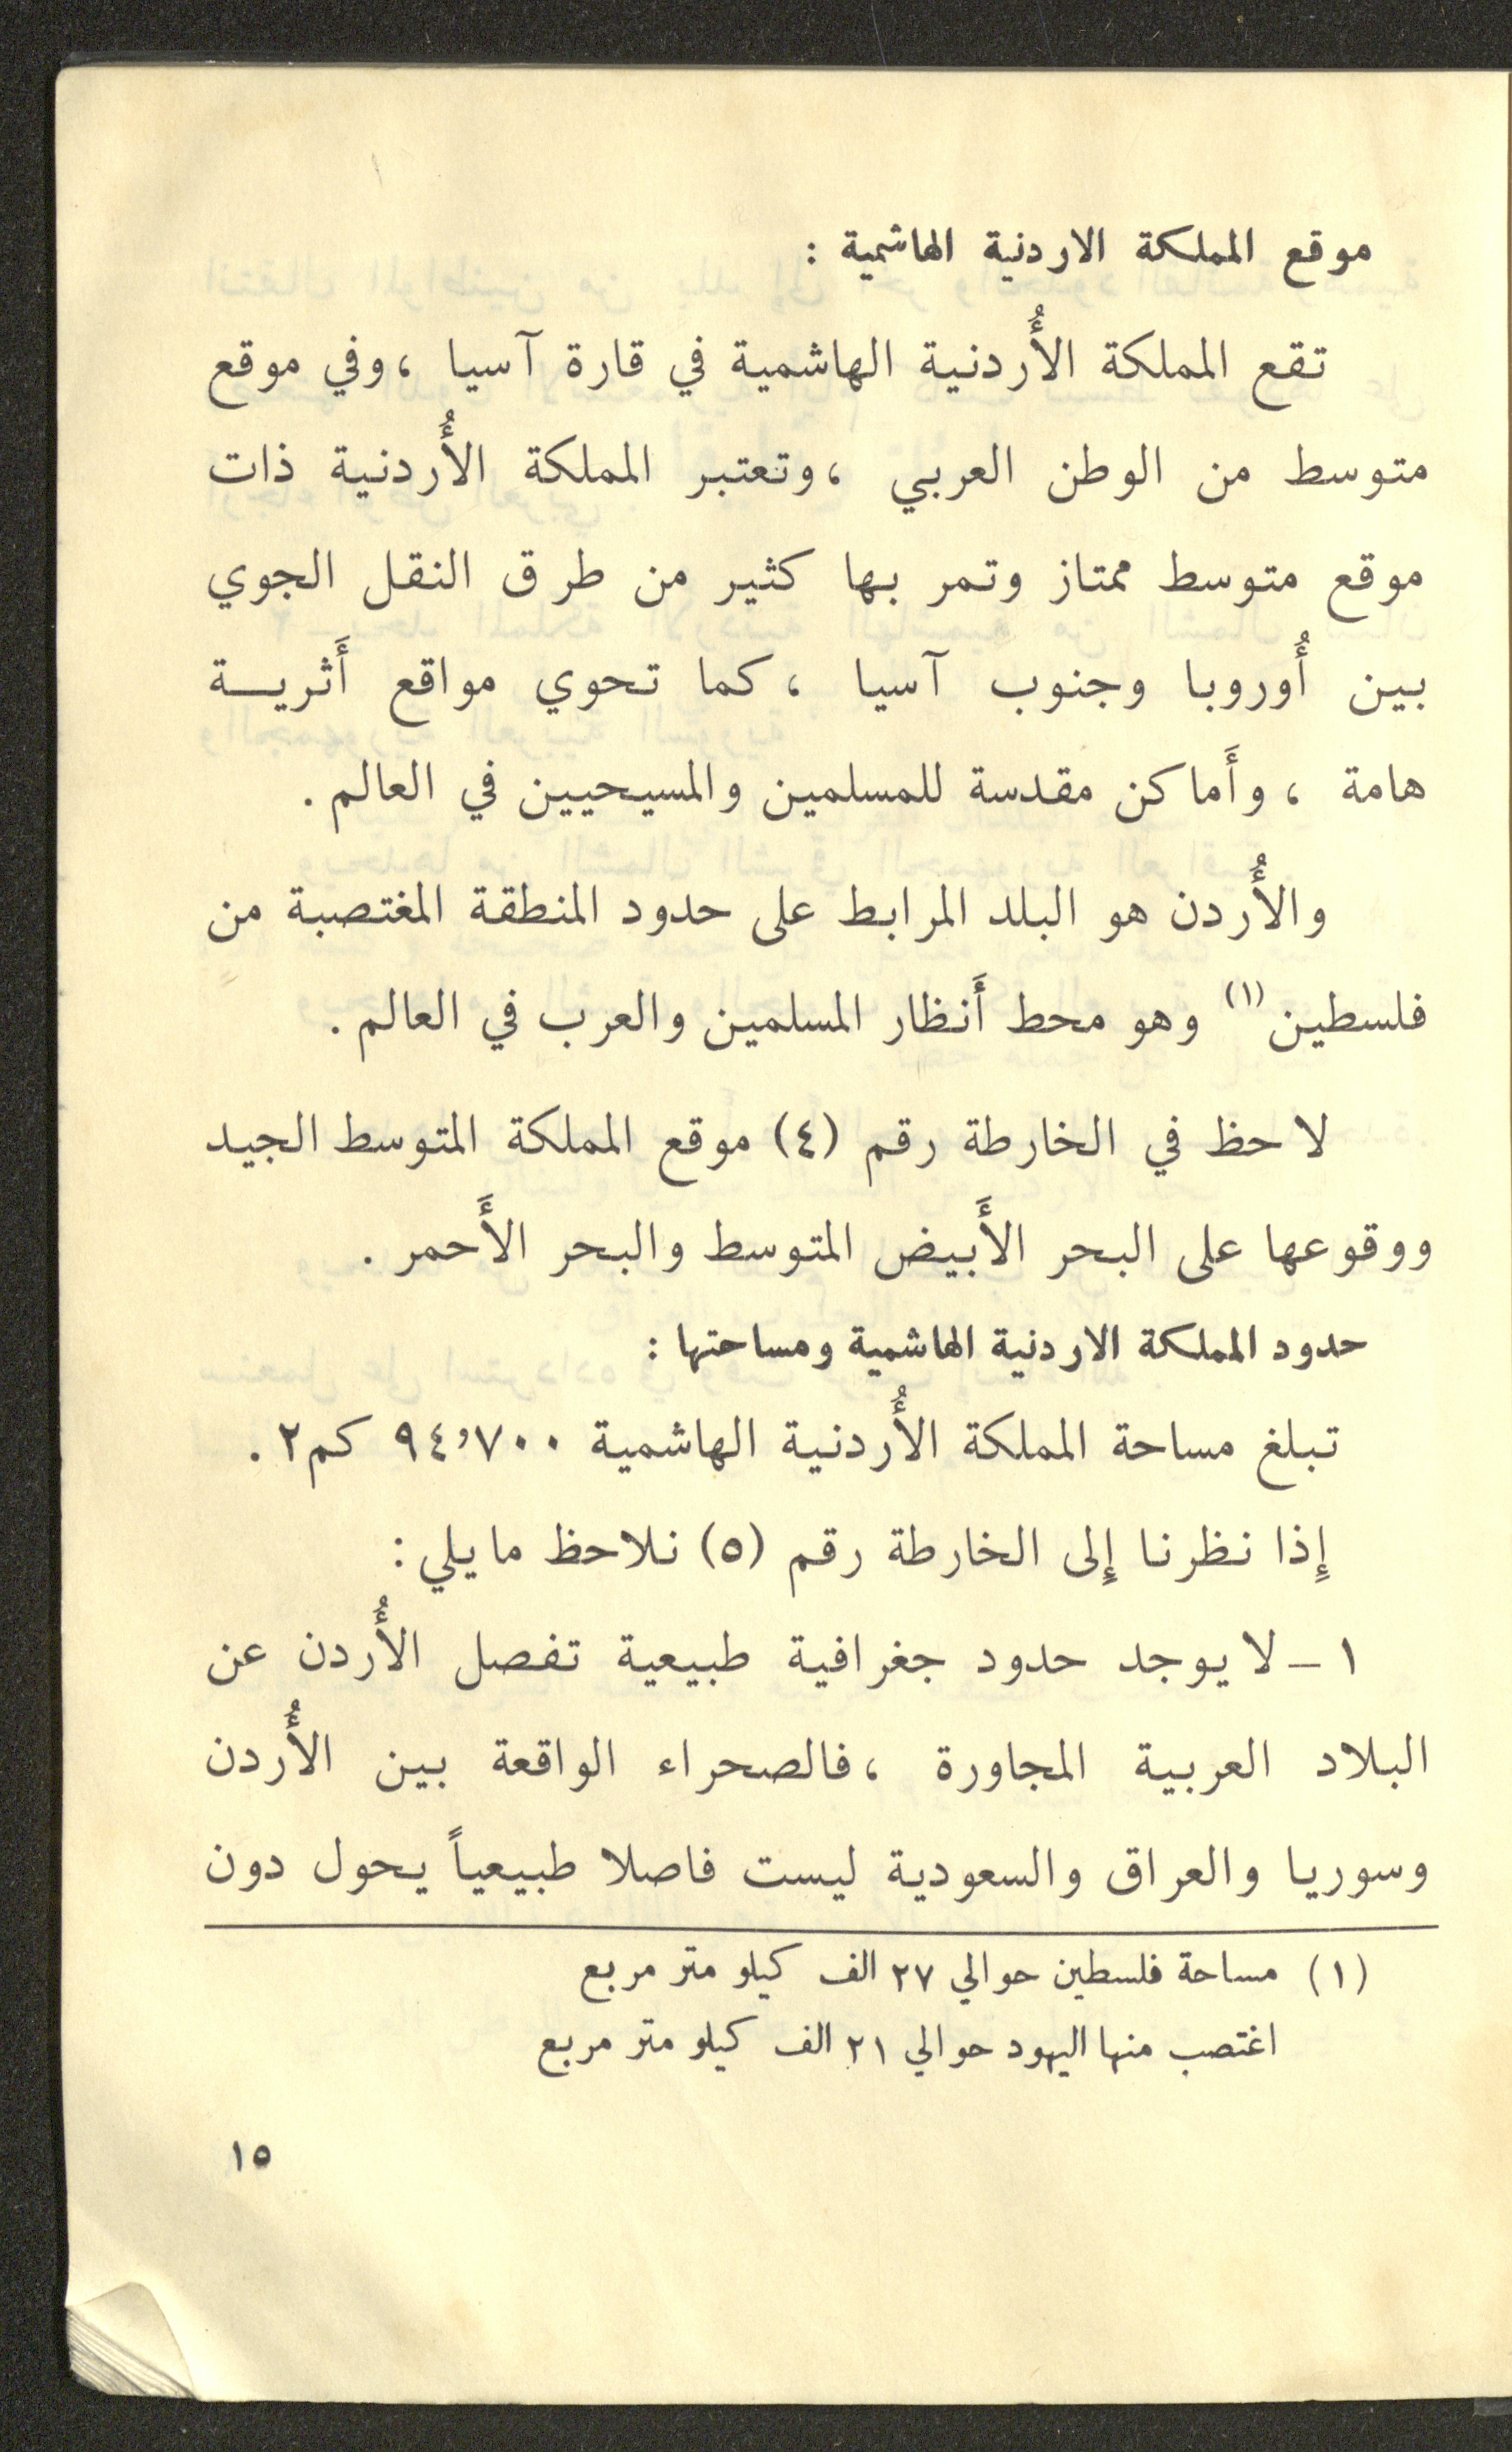 موقع المملكة الاردنية الهاشمية :
تقع المملكة الأُردنية الهاشمية في قارة آسيا ، وفي موقع
متوسط من الوطن العربي ، وتعتبر المملكة الأُردنية ذات
موقع متوسط ممتاز وتمر بها كثير من طرق النقل الجوي
بين أُوروبا وجنوب آسيا ، كما تحوي مواقع أَثريـــة
هامة ، وأَماكن مقدسة للمسلمين والمسيحيين في العالم .
والأُردن هو البلد المرابط على حدود المنطقة المغتصبة من
فلسطين (١) وهو محط أَنظار المسلمين والعرب في العالم .
لاحظ في الخارطة رقم (٤) موقع المملكة المتوسط الجيد
ووقوعها على البحر الأَبيض المتوسط والبحر الأَحمر .
حدود المملكة الاردنية الهاشمية ومساحتها :
تبلغ مساحة المملكة الأُردنية الهاشمية ٩٤,٧٠٠ كم٢ .
إِذا نظرنا إِلى الخارطة رقم (٥) نلاحظ مايلي :
١ – لا يوجد حدود جغرافية طبيعية تفصل الأُردن عن
البلاد العربية المجاورة ، فالصحراء الواقعة بين الأُردن
وسوريا والعراق والسعودية ليست فاصلا طبيعياً يحول دون
(١) مساحة فلسطين حوالي ٢٧ الف كيلو متر مربع
اغتصب منها اليهود حوالي ٢١ الف كيلو متر مربع
١٥